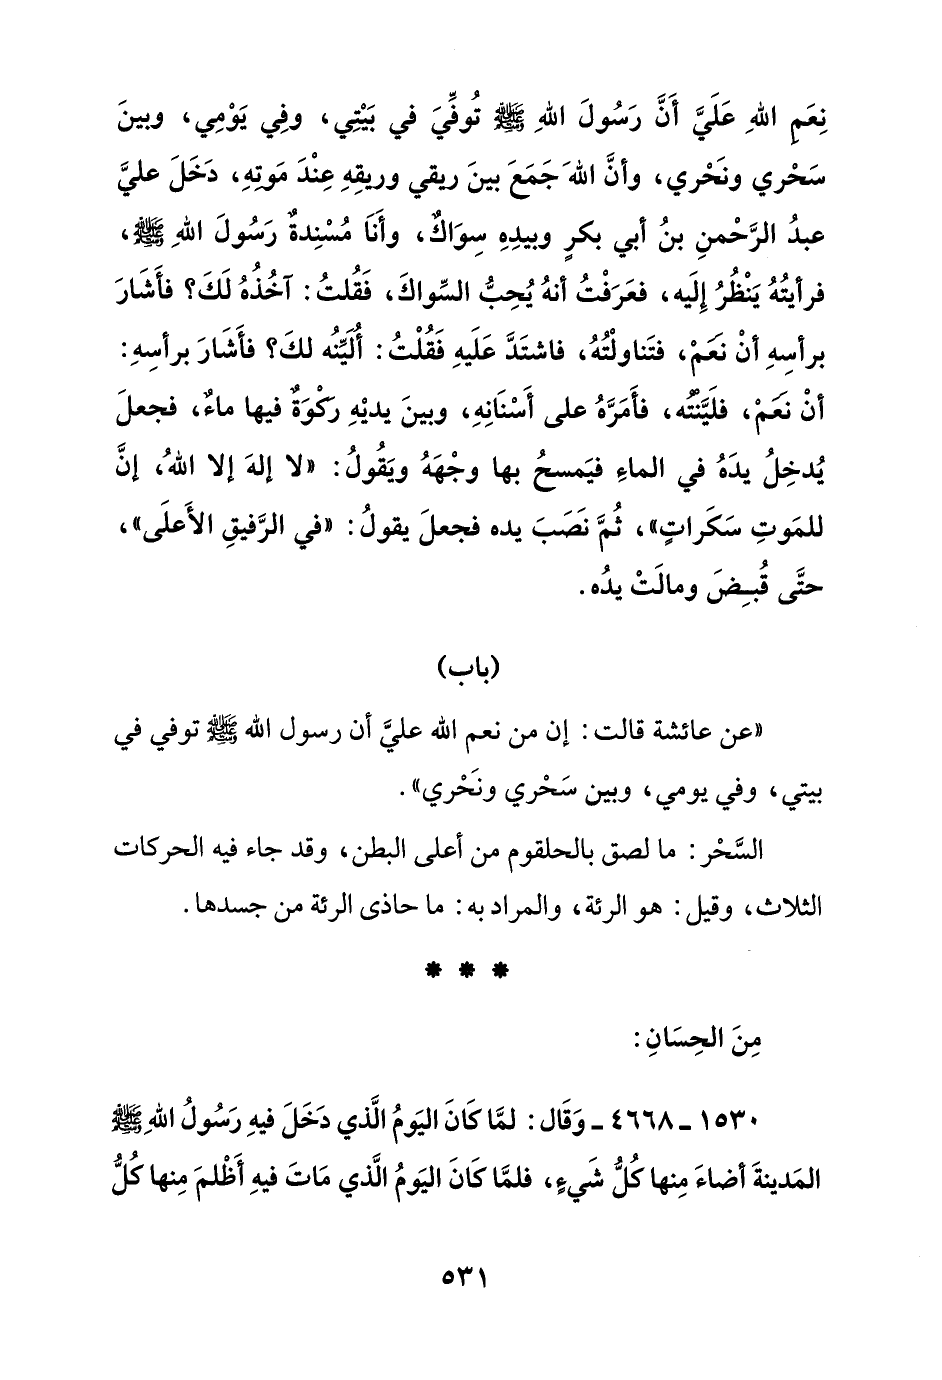 نِعَمِ اللهِ عَلَيَّ أَنَّ رَسُولَ اللهِ ﷺ تُوفِّيَ في بَيْتِي، وفِي يَوْمِي، وبينَ
سَحْري ونَحْري، وأنَّ اللهَ جَمَعَ بينَ ريقي وريقِهِ عِنْدَ مَوتِهِ، دَخَلَ عليَّ
عبدُ الرَّحْمنِ بنُ أبي بكرٍ وبيدِهِ سِوَاكٌ، وأَنَا مُسْنِدةٌ رَسُولَ اللهِ ﷺ،
فرأيتُهُ يَنْظُرُ إلَيه، فعَرَفْتُ أنهُ يُحِبُّ السِّواكَ، فَقُلتُ: آخُذُهُ لَكَ؟ فأَشَارَ
برأسِهِ أنْ نَعَمْ، فتَناولْتُهُ، فاشتَدَّ عَلَيهِ فَقُلْتُ: أُلَيِّنُه لكَ؟ فأَشَارَ برأسِهِ:
أنْ نَعَمْ، فليَّنْتُه، فأمَرَّهُ على أَسْنَانِهِ، وبينَ يديْهِ رَكْوَةٌ فيها ماءٌ، فجعلَ
يُدخِلُ يدَهُ في الماءِ فيَمسحُ بها وجْهَهُ ويَقُولُ: «لا إلهَ إلا اللهُ، إنَّ
للمَوتِ سَكَراتٍ»، ثُمَّ نَصَبَ يده فجعلَ يقولُ: «في الرَّفيقِ الأَعلَى»،
حتَّى قُبِضَ ومالَتْ يدُه.
(باب)
«عن عائشة قالت: إن من نعم الله عليَّ أن رسول الله ﷺ توفي في
بيتي، وفي يومي، وبين سَحْري ونَحْري».
السَّحْر: ما لصق بالحلقوم من أعلى البطن، وقد جاء فيه الحركات
الثلاث، وقيل: هو الرئة، والمراد به: ما حاذى الرئة من جسدها.
* * *
مِنَ الحِسَانِ:
١٥٣٠ ـ ٤٦٦٨ ـ وَقَال: لمَّا كَانَ اليَومُ الَّذي دَخَلَ فيهِ رَسُولُ اللهِ ﷺ
المَدينةَ أضاءَ مِنها كُلُّ شَيءٍ، فلمَّا كَانَ اليَومُ الَّذي مَاتَ فيهِ أَظْلمَ مِنها كُلُّ
٥٣١